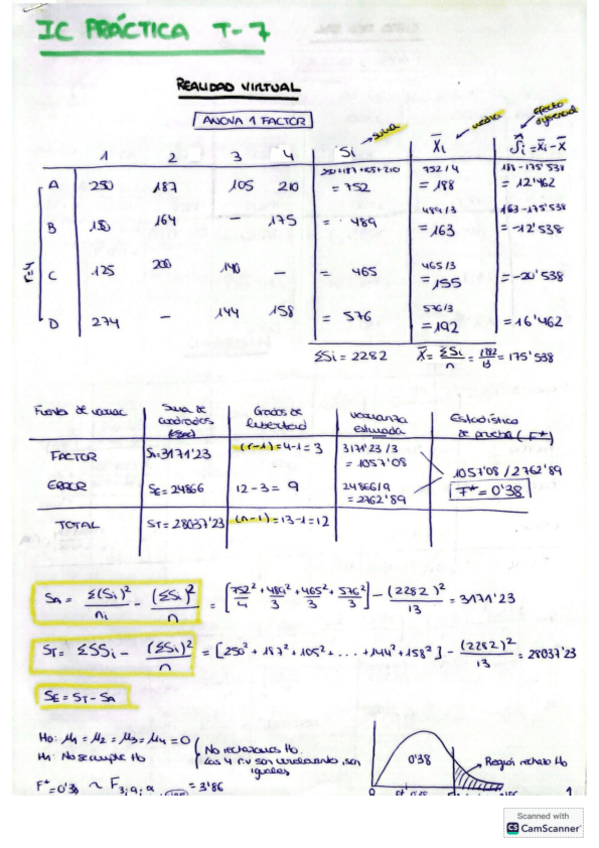 IC PRÁCTICA T-7
REALIDAD VIRTUAL
ANOVA 1 FACTOR
1 2 3 4 Si suma X̄i media Ŝi = X̄i - X̄ efecto diferencial
A 250 187 105 210 250+187+105+210 = 752 752/4 = 188 188-175'538 = 12'462
B 150 164 — 175 = 489 489/3 = 163 163-175'538 = -12'538
C 125 200 140 — = 465 465/3 = 155 = -20'538
D 274 — 144 158 = 576 576/3 = 192 = 16'462
r=4
ΣSi = 2282 X̄ = ΣSi/n = 2282/13 = 175'538
Fuentes de variac Suma de cuadrados Grados de libertad Varianza estimada Estadístico de prueba (F*)
FACTOR SA=3171'23 (r-1)=4-1=3 3171'23/3 = 1057'08
ERROR SE=24866 12-3=9 24866/9 = 2762'89
1057'08/2762'89
F*=0'38
TOTAL ST=28037'23 (n-1)=13-1=12
SA = Σ(Si)²/ni - (ΣSi)²/n = [752²/4 + 489²/3 + 465²/3 + 576²/3] - (2282)²/13 = 3171'23
ST = ΣSSi - (ΣSi)²/n = [250² + 187² + 105² + ... + 144² + 158²] - (2282)²/13 = 28037'23
SE = ST - SA
H0: μ1 = μ2 = μ3 = μ4 = 0
H1: No se cumple H0
No rechazamos H0.
Las 4 r.v son son iguales
F*=0'38 ~ F3;9;α = 3'86
0'38
Región rechazo H0
0
1
Scanned with
CS CamScanner